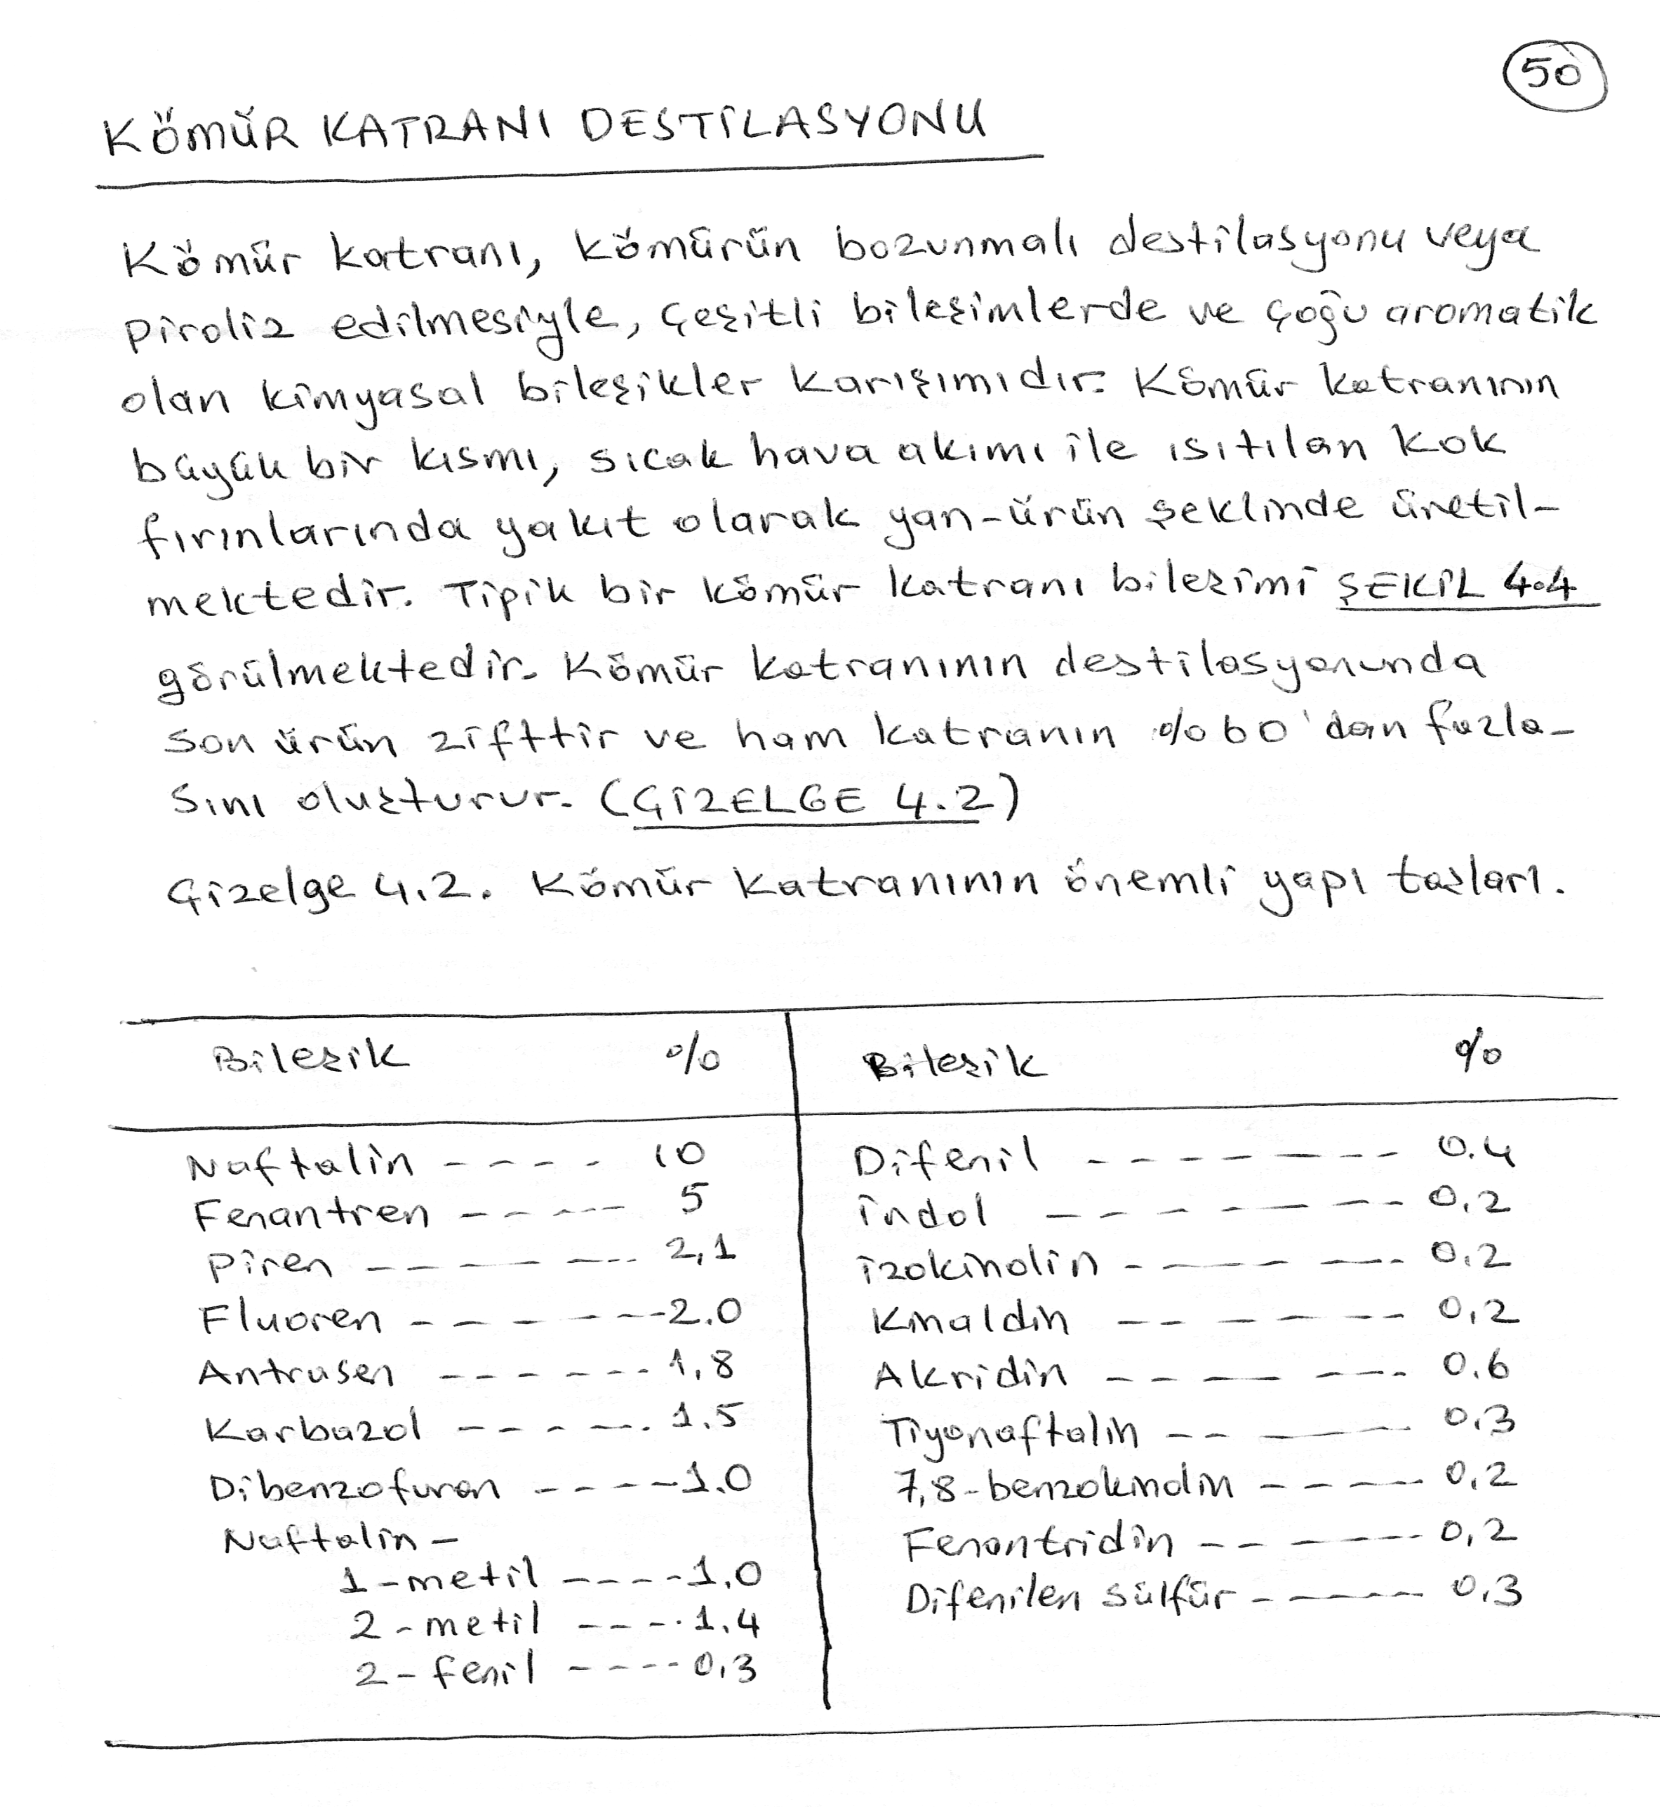 50
KÖMÜR KATRANI DESTİLASYONU
Kömür katranı, kömürün bozunmalı destilasyonu veya
piroliz edilmesiyle, çeşitli bileşimlerde ve çoğu aromatik
olan kimyasal bileşikler karışımıdır. Kömür katranının
büyük bir kısmı, sıcak hava akımı ile ısıtılan kok
fırınlarında yakıt olarak yan-ürün şeklinde üretil-
mektedir. Tipik bir kömür katranı bileşimi ŞEKİL 4.4
görülmektedir. Kömür katranının destilasyonunda
son ürün zifttir ve ham katranın %60'dan fazla-
sını oluşturur. (ÇİZELGE 4.2)
Çizelge 4.2. Kömür katranının önemli yapı taşları.
Bileşik % Bileşik %
Naftalin ---- 10 Difenil -------- 0.4
Fenantren ----- 5 İndol -------- 0,2
Piren ------ 2,1 İzokinolin ------ 0.2
Fluoren ------2.0 Kinaldin ------ 0,2
Antrasen ------ 1,8 Akridin ------ 0.6
Karbazol ----- 1.5 Tiyonaftalin ---- 0,3
Dibenzofuran -----1.0 7,8-benzokinolin ----- 0,2
Naftalin- Fenantridin ----- 0,2
1-metil ----1,0 Difenilen sülfür ---- 0,3
2-metil ---- 1,4
2-fenil ---- 0,3